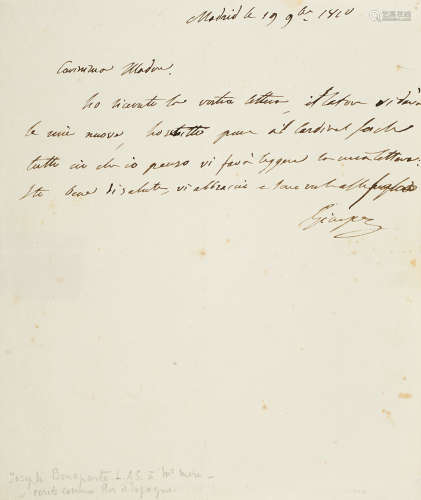 Madrid le 19 9bre 1810
Carissima Madre.
ho ricevuto la vostra lettera, il latore vi darà
le mie nuove, ho scritto pure al Cardinal Fesch
tutto ciò che io penso vi farà leggere la mia lettera.
Sto bene di salute, vi abbraccio e sono vostro aff. figlio
Giuseppe
Joseph Bonaparte L.A.S. à sa mère
écrite comme Roi d'Espagne.